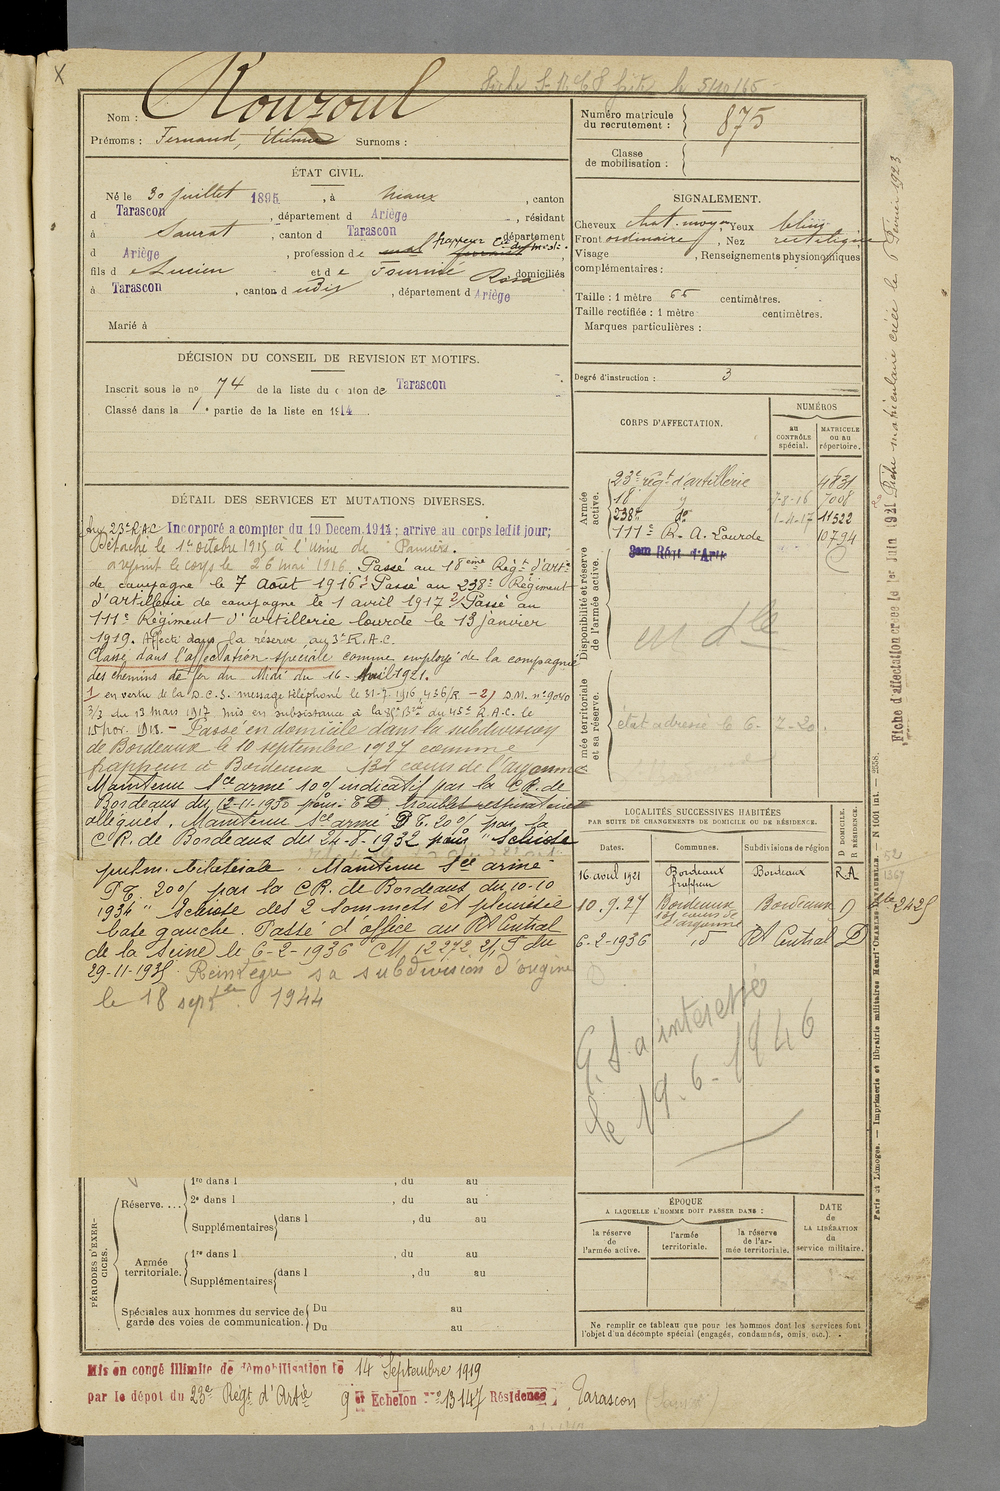 x
Fiche
le 5/10/65
Nom : Rouzoul
Prénoms : Fernand, Etienne Surnoms :
Numéro matricule
du recrutement : 875
Classe
de mobilisation :
ÉTAT CIVIL.
Né le 30 juillet 1895, à Niaux, canton
d Tarascon, département d Ariège, résidant
à Saurat, canton d Tarascon, département
d Ariège, profession de frappeur Cie du Midi
fils de Lucien et de Fournié Rosa domiciliés
à Tarascon, canton d udit, département d Ariège
Marié à
SIGNALEMENT.
Cheveux chat. moyen, Yeux bleus
Front ordinaire, Nez rectiligne
Visage , Renseignements physionomiques
complémentaires :
Taille : 1 mètre 66 centimètres.
Taille rectifiée : 1 mètre centimètres.
Marques particulières :
DÉCISION DU CONSEIL DE REVISION ET MOTIFS.
Inscrit sous le no 74 de la liste du canton de Tarascon
Classé dans la 1e partie de la liste en 1914
Degré d'instruction : 3
CORPS D'AFFECTATION.
NUMÉROS
au
CONTRÔLE
spécial.
MATRICULE
ou au
répertoire.
Armée
active.
23e régt d'artillerie 4831
18 7-8-16 7008
238e do 1-4-17 11322
111e R. A. Lourde 10794
Disponibilité et réserve
de l'armée active.
Armée territoriale
et sa réserve.
état adressé le 6-7-20
DÉTAIL DES SERVICES ET MUTATIONS DIVERSES.
Au 23e R.A.C. Incorporé a compter du 19 Decem. 1914 ; arrive au corps ledit jour;
Détaché le 1er octobre 1915 à l'usine de Pamiers.
a rejoint le corps le 26 mai 1916. Passé au 18eme Régt d'artie
de campagne le 7 Aout 1916 1/ Passé au 238e Régiment
d'artillerie de campagne le 1 avril 1917 2/ Passé au
111e Régiment d'artillerie lourde le 13 janvier
1919. Affecté dans la réserve au 3e R.A.C.
Classé dans l'affectation spéciale comme employé de la compagnie
des chemins de fer du Midi du 16- Avril 1921.
1 en vertu de la D.C.S. message téléphoné le 31-7-1916, 436/R - 2/ D.M. no 9040
3/3 du 13 mars 1917 mis en subsistance à la 81e Bie du 45e R.A.C. le
15 nov. 1918. - Passé en domicile dans la subdivision
de Bordeaux le 10 septembre 1927 comme
frappeur à Bordeaux 131 cours de l'argonne
Maintenu Sce armé 10% indicatif par la C.R. de
Bordeaux du 12-11-1930 pour : E D troubles respiratoires
allégués. Maintenu Sce armé P T. 20% par la
C.R. de Bordeaux du 24-5-1932 pour "Sclérose
pulm. bilatérale. Maintenu Sce armé
P T. 20% par la C.R. de Bordeaux du 10-10
1934 "Sclérose des 2 sommets et pleurésie
base gauche. Passé d'office au Rt Central
de la Seine le 6-2-1936 C.M. 12272 2/1 T du
29-11-1935 Réintégré sa subdivision d'origine
le 18 septbre 1944
LOCALITÉS SUCCESSIVES HABITÉES
PAR SUITE DE CHANGEMENTS DE DOMICILE OU DE RÉSIDENCE.
Dates. Communes. Subdivisions de région D DOMICILE. R RÉSIDENCE.
16 avril 1921 Bordeaux frappeur Bordeaux RA
10.9.27 Bordeaux 131 cours de l'argonne Bordeaux D
6-2-1936 id Rt Central D
G.S. a intéressé
le 19.6-1946
PÉRIODES D'EXERCICES.
Réserve....
1re dans l , du au
2e dans l , du au
Supplémentaires dans l , du au
Armée
territoriale.
1re dans l , du au
Supplémentaires dans l , du au
Spéciales aux hommes du service de
garde des voies de communication.
Du au
Du au
ÉPOQUE
A LAQUELLE L'HOMME DOIT PASSER DANS :
la réserve
de
l'armée active.
l'armée
territoriale.
la réserve
de l'armée territoriale.
DATE
de
LA LIBÉRATION
du
service militaire.
Ne remplir ce tableau que pour les hommes dont les services font
l'objet d'un décompte spécial (engagés, condamnés, omis, etc.).
Mis en congé illimité de démobilisation le 14 Septembre 1919
par le dépot du 23e Régt d'Artie 9 er Echelon no 13147 Résidence Tarascon
Fiche d'affectation créée le 1er Juin 1921 Fiche matriculaire créée le 6 Février 1923
Paris et Limoges. — Imprimerie et librairie militaires Henri CHARLES-LAVAUZELLE. — N 1001 int. — 2558.
52
1367
2425